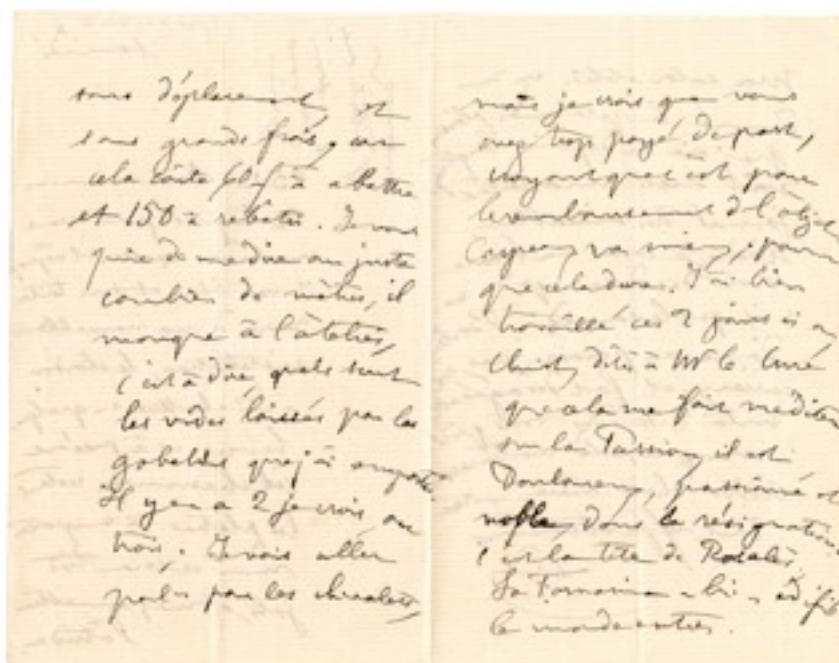 sans déplacement, et
sans grands frais, car
cela coûte 60f à abattre
et 150 à rebâtir. Je vous
prie de me dire au juste
combien de mètres, il
manque à l'atelier,
c'est à dire, quels sont
les vides laissés par les
gobelins que j'ai emportés
Il y en a 2 je crois ou
trois. Je vais aller
parler pour les
mais je crois que vous
avez trop payé de port,
croyant que c'est pour
le remboursement de l'objet
va mieux, pourvu
que cela dure. J'ai bien
travaillé ces 2 jours ci au
Christ, dites à Mr le Curé
que cela me fait méditer
sur la Passion, il est
Douloureux, passionné et
noble, dans la résignation
c'est la tête de Rosalès.
La Fornarina a bien édifié
le monde entier.